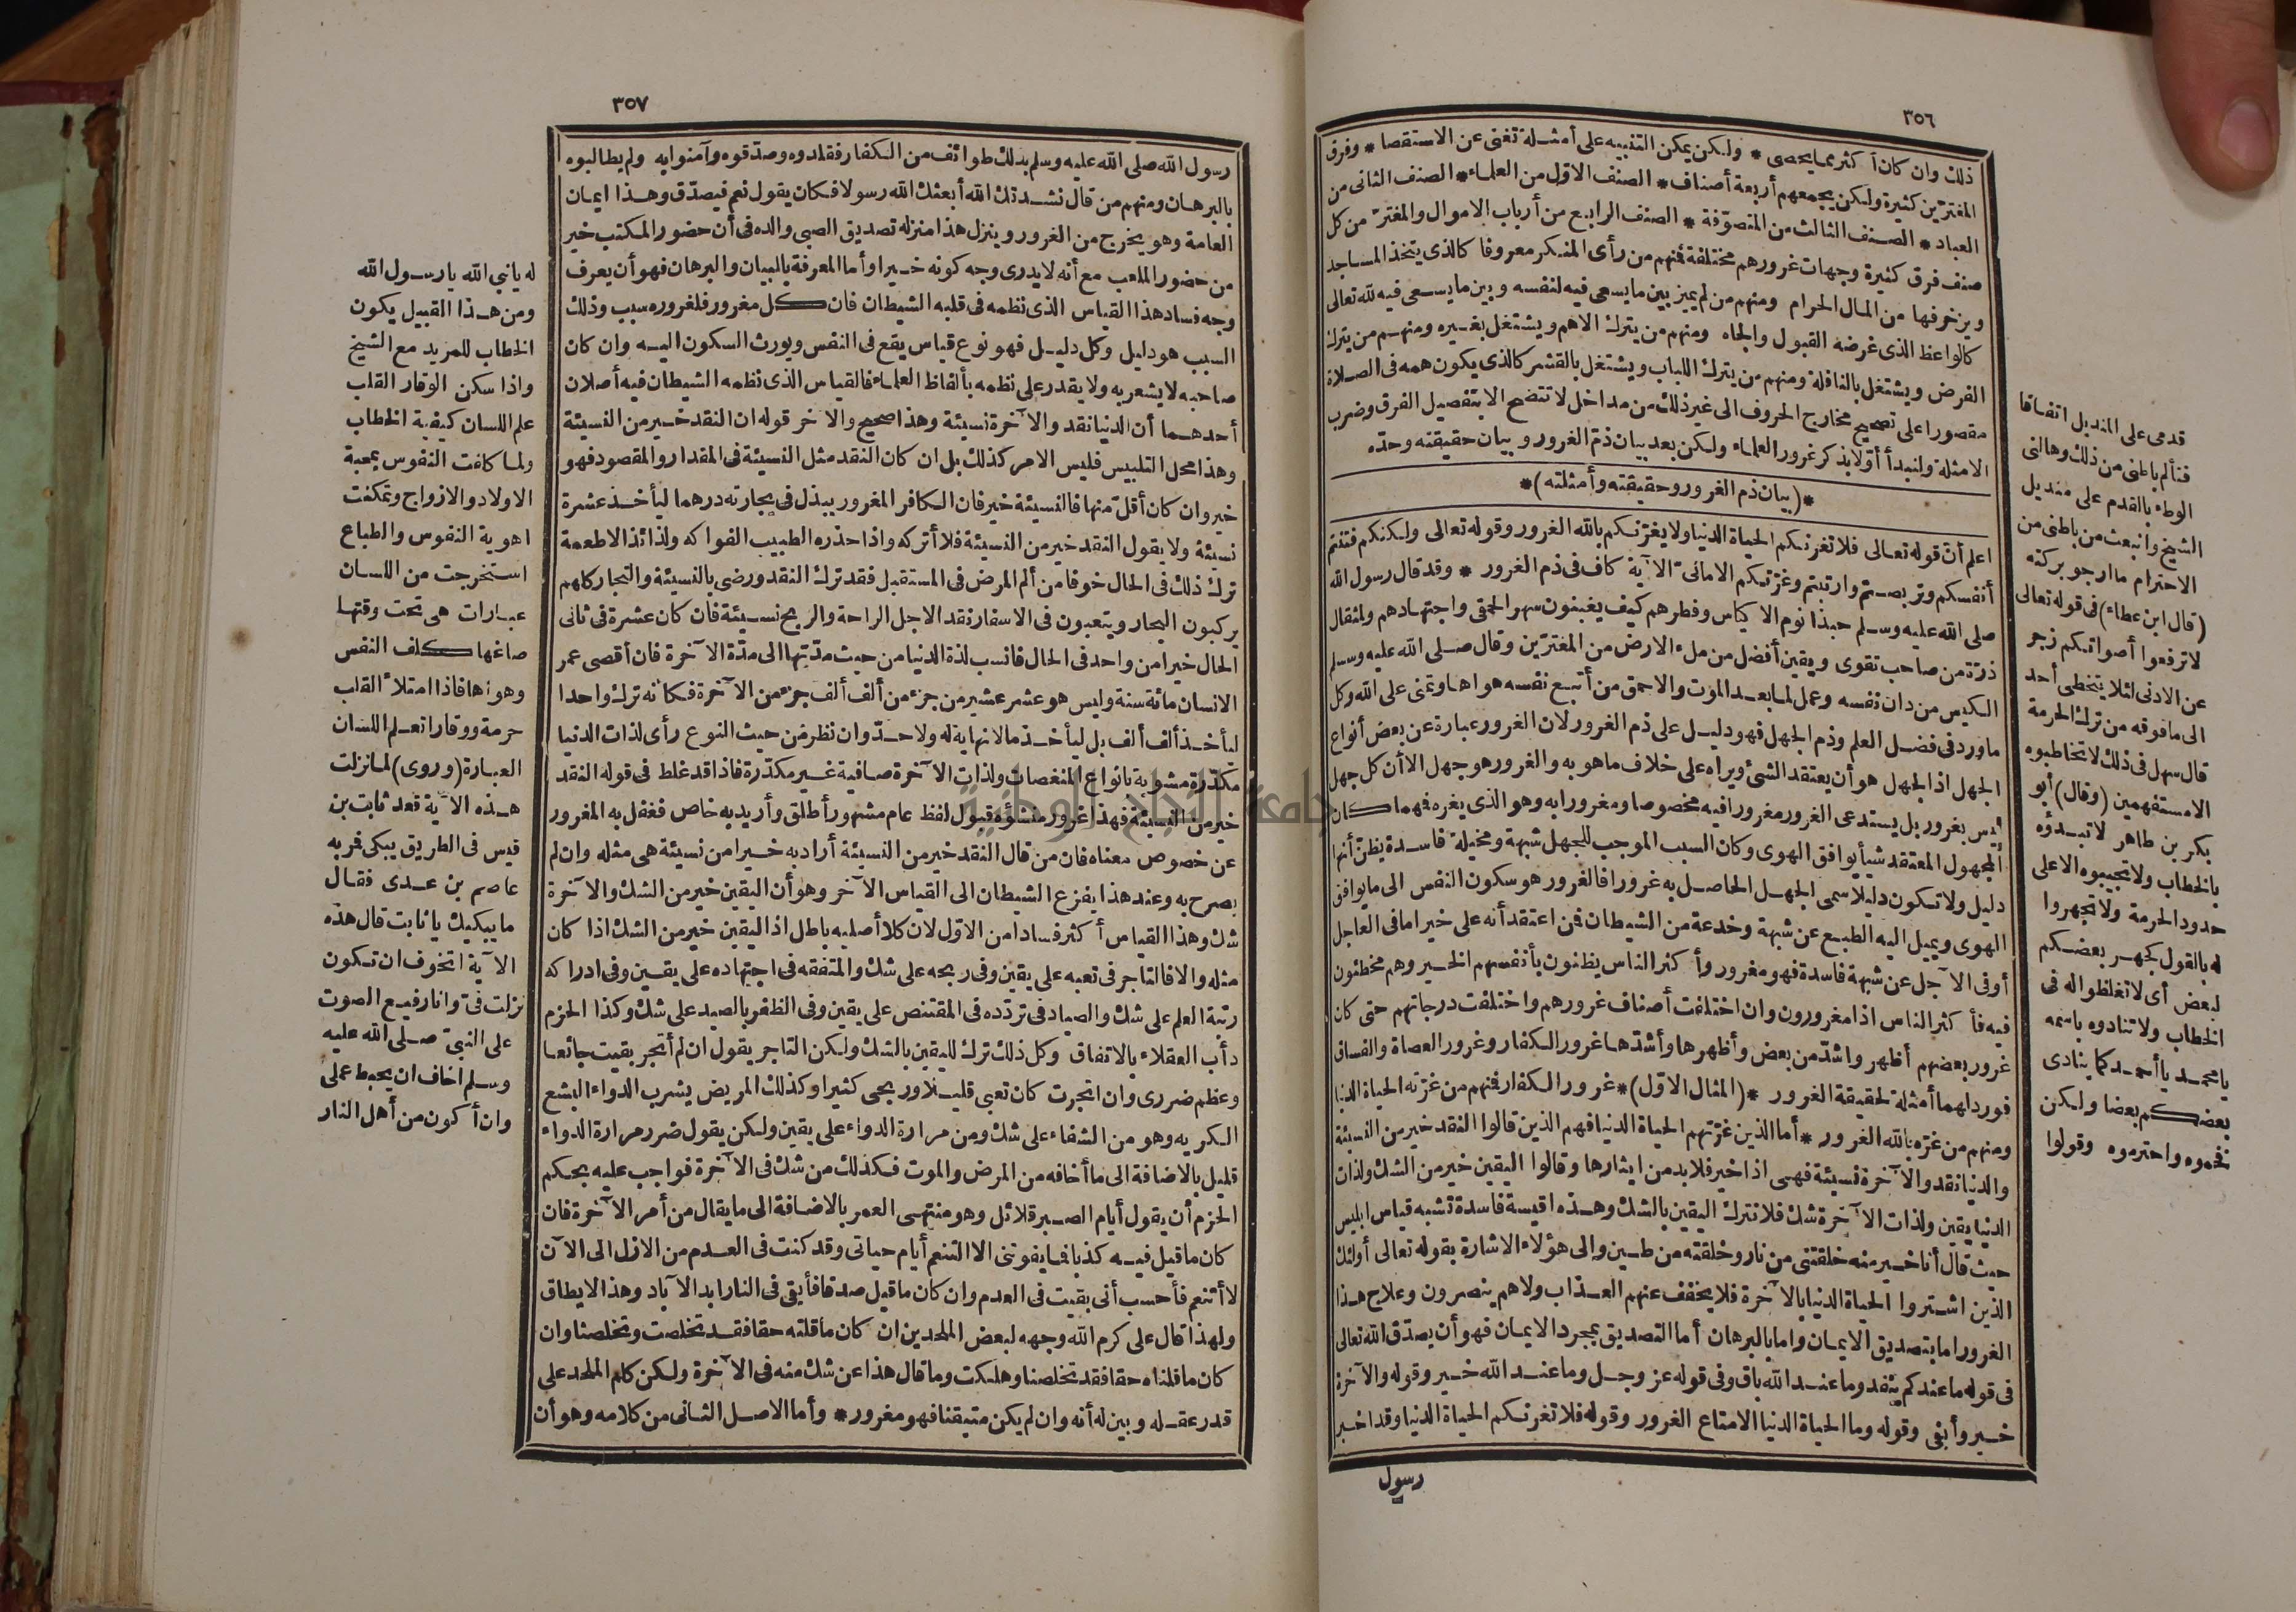 ٣٥٦
ذلك وان كان أكثر مما يحصى * ولكن يمكن التنبيه على أمثلة تغنى عن الاستقصا * وفرق
المغترّين كثيرة ولكن يجمعهم أربعة أصناف * الصنف الاوّل من العلماء * الصنف الثانى من
العباد * الصنف الثالث من المتصوّفة * الصنف الرابع من أرباب الاموال والمغترّ من كل
صنف فرق كثيرة وجهات غرورهم مختلفة فمنهم من رأى المنكر معروفا كالذى يتخذ المساجد
ويزخرفها من المال الحرام ومنهم من لم يميز بين ما يسعى فيه لنفسه وبين ما يسعى فيه لله تعالى
كالواعظ الذى غرضه القبول والجاه ومنهم من يترك الاهم ويشتغل بغيره ومنهم من يترك
الفرض ويشتغل بالنافلة ومنهم من يترك اللباب ويشتغل بالقشر كالذى يكون همه فى الصلاة
مقصورا على تصحيح مخارج الحروف الى غير ذلك من مداخل لا تتضح الا بتفصيل الفرق وضرب
الامثلة ولنبدأ أوّلا بذكر غرور العلماء ولكن بعد بيان ذم الغرور وبيان حقيقته وحدّه
*(بيان ذم الغرور وحقيقته وأمثلته)*
اعلم أنّ قوله تعالى فلا تغرنكم الحياة الدنيا ولا يغرّنكم بالله الغرور وقوله تعالى ولكنكم فتنتم
أنفسكم وتربصتم وارتبتم وغرّتكم الامانىّ الآية كاف فى ذم الغرور * وقد قال رسول الله
صلى الله عليه وسلم حبذا نوم الاكياس وفطرهم كيف يغبنون سهر الحمقى واجتهادهم ولمثقال
ذرّة من صاحب تقوى ويقين أفضل من ملء الارض من المغترّين وقال صلى الله عليه وسلم
الكيس من دان نفسه وعمل لما بعد الموت والاحمق من أتبع نفسه هواها وتمنى على الله وكل
ما ورد فى فضل العلم وذم الجهل فهو دليل على ذم الغرور لان الغرور عبارة عن بعض أنواع
الجهل اذ الجهل هو أن يعتقد الشئ ويراه على خلاف ما هو به والغرور هو جهل الا أن كل جهل
ليس بغرور بل يستدعى الغرور مغرورا فيه مخصوصا ومغرورا به وهو الذى يغره فهما كان
المجهول المعتقد شيأ يوافق الهوى وكان السبب الموجب للجهل شبهة ومخيلة فاسدة يظنّ أنها
دليل ولا تكون دليلا سمى الجهل الحاصل به غرورا فالغرور هو سكون النفس الى ما يوافق
الهوى ويميل اليه الطبع عن شبهة وخدعة من الشيطان فمن اعتقد أنه على خير اما فى العاجل
أو فى الآجل عن شبهة فاسدة فهو مغرور وأكثر الناس يظنون بأنفسهم الخير وهم مخطئون
فيه فأكثر الناس اذا مغرورون وان اختلفت أصناف غرورهم واختلفت درجاتهم حتى كان
غرور بعضهم أظهر واشدّ من بعض وأظهرها وأشدّها غرور الكفار وغرور العصاة والفساق
فنورد لهما أمثلة لحقيقة الغرور *(المثال الاوّل)* غرور الكفار فمنهم من غرّته الحياة الدنيا
ومنهم من غرّه بالله الغرور * أما الذين غرّتهم الحياة الدنيا فهم الذين قالوا النقد خير من النسيئة
والدنيا نقد والآخرة نسيئة فهى اذا خير فلا بد من ايثارها وقالوا اليقين خير من الشك ولذات
الدنيا يقين ولذات الآخرة شك فلا نترك اليقين بالشك وهذه اقيسة فاسدة تشبه قياس ابليس
حيث قال أنا خير منه خلقتنى من نار وخلقته من طين والى هؤلاء الاشارة بقوله تعالى أولئك
الذين اشتروا الحياة الدنيا بالآخرة فلا يخفف عنهم العذاب ولا هم ينصرون وعلاج هذا
الغرور اما بتصديق الايمان واما بالبرهان أما التصديق بمجرد الايمان فهو أن يصدّق الله تعالى
فى قوله ما عندكم ينفد وما عند الله باق وفى قوله عز وجل وما عند الله خير وقوله والآخرة
خير وأبقى وقوله وما الحياة الدنيا الا متاع الغرور وقوله فلا تغرنكم الحياة الدنيا وقد اخبر
رسول
قدمى على المنديل اتفاقا
فتألم باطنى من ذلك وهالنى
الوطء بالقدم على منديل
الشيخ وانبعث من باطنى من
الاحترام ما ارجو بركته
(قال ابن عطاء) فى قوله تعالى
لا ترفعوا أصواتكم زجر
عن الادنى لئلا يتخطى أحد
الى ما فوقه من ترك الحرمة
قال سهل فى ذلك لا تخاطبوه
الا مستفهمين (وقال) أبو
بكر بن طاهر لا تبدؤه
بالخطاب ولا تجيبوه الا على
حدود الحرمة ولا تجهروا
له بالقول كجهر بعضكم
لبعض أى لا تغلظوا له فى
الخطاب ولا تنادوه باسمه
يا محمد يا أحمد كما ينادى
بعضكم بعضا ولكن
فخموه واحترموه وقولوا
٣٥٧
رسول الله صلى الله عليه وسلم بذلك طوائف من الكفار فقلدوه وصدّقوه وآمنوا به ولم يطالبوه
بالبرهان ومنهم من قال نشدتك الله أبعثك الله رسولا فكان يقول نعم فيصدّق وهذا ايمان
العامة وهو يخرج من الغرور وينزل هذا منزلة تصديق الصبى والده فى أن حضور المكتب خير
من حضور الملعب مع أنه لا يدرى وجه كونه خيرا وأما المعرفة بالبيان والبرهان فهو أن يعرف
وجه فساد هذا القياس الذى نظمه فى قلبه الشيطان فان كل مغرور فلغروره سبب وذلك
السبب هو دليل وكل دليل فهو نوع قياس يقع فى النفس ويورث السكون اليه وان كان
صاحبه لا يشعر به ولا يقدر على نظمه بألفاظ العلماء فالقياس الذى نظمه الشيطان فيه أصلان
أحدهما أن الدنيا نقد والآخرة نسيئة وهذا صحيح والآخر قوله ان النقد خير من النسيئة
وهذا محل التلبيس فليس الامر كذلك بل ان كان النقد مثل النسيئة فى المقدار والمقصود فهو
خير وان كان أقلّ منها فالنسيئة خير فان الكافر المغرور يبذل فى تجارته درهما ليأخذ عشرة
نسيئة ولا يقول النقد خير من النسيئة فلا أتركه واذا حذره الطبيب الفواكه ولذائذ الاطعمة
ترك ذلك فى الحال خوفا من ألم المرض فى المستقبل فقد ترك النقد ورضى بالنسيئة والتجار كلهم
يركبون البحار ويتعبون فى الاسفار نقدا لاجل الراحة والربح نسيئة فان كان عشرة فى ثانى
الحال خيرا من واحد فى الحال فانسب لذة الدنيا من حيث مدّتها الى مدّة الآخرة فان أقصى عمر
الانسان مائة سنة وليس هو عشر عشير من جزء من ألف ألف جزء من الآخرة فكانه ترك واحدا
ليأخذ ألف ألف بل ليأخذ ما لا نهاية له ولا حدّ وان نظر من حيث النوع رأى لذات الدنيا
مكدّرة مشوبة بانواع المنغصات ولذات الآخرة صافية غير مكدّرة فاذا قد غلط فى قوله النقد
خير من النسيئة فهذا غرور منشؤه قبول لفظ عام مشهور أطلق وأريد به خاص فغفل به المغرور
عن خصوص معناه فان من قال النقد خير من النسيئة أراد به خيرا من نسيئة هى مثله وان لم
يصرح به وعند هذا يفزع الشيطان الى القياس الآخر وهو أن اليقين خير من الشك والآخرة
شك وهذا القياس أكثر فسادا من الاوّل لان كلا أصليه باطل اذ اليقين خير من الشك اذا كان
مثله والا فالتاجر فى تعبه على يقين وفى ربحه على شك والمتفقه فى اجتهاده على يقين وفى ادراكه
رتبة العلم على شك والصياد فى تردّده فى المقتنص على يقين وفى الظفر بالصيد على شك وكذا الحزم
دأب العقلاء بالاتفاق وكل ذلك ترك لليقين بالشك ولكن التاجر يقول ان لم أتجر بقيت جائعا
وعظم ضررى وان اتجرت كان تعبى قليلا وربحى كثيرا وكذلك المريض يشرب الدواء البشع
الكريه وهو من الشفاء على شك ومن مرارة الدواء على يقين ولكن يقول ضرر مرارة الدواء
قليل بالاضافة الى ما أخافه من المرض والموت فكذلك من شك فى الآخرة فواجب عليه بحكم
الحزم أن يقول أيام الصبر قلائل وهو منتهى العمر بالاضافة الى ما يقال من أمر الآخرة فان
كان ما قيل فيه كذبا فما يفوتنى الا التنعم أيام حياتى وقد كنت فى العدم من الازل الى الآن
لا أتنعم فأحسب أنى بقيت فى العدم وان كان ما قيل صدقا فأبقى فى النار ابد الآباد وهذا لا يطاق
ولهذا قال على كرم الله وجهه لبعض الملحدين ان كان ما قلته حقا فقد تخلصت وتخلصنا وان
كان ما قلناه حقا فقد تخلصنا وهلكت وما قال هذا عن شك منه فى الآخرة ولكن كلم الملحد على
قدر عقله وبين له أنه وان لم يكن متيقنا فهو مغرور * وأما الاصل الثانى من كلامه وهو أن
له يا نبى الله يا رسول الله
ومن هذا القبيل يكون
الخطاب للمريد مع الشيخ
واذا سكن الوقار القلب
علم اللسان كيفية الخطاب
ولما كلفت النفوس بمحبة
الاولاد والازواج وتمكنت
اهوية النفوس والطباع
استخرجت من اللسان
عبارات هى تحت وقتها
صاغها كلف النفس
وهواها فاذا امتلأ القلب
حرمة ووقارا تعلم اللسان
العبارة (وروى) لما نزلت
هذه الآية قعد ثابت بن
قيس فى الطريق يبكى فمر به
عاصم بن عدى فقال
ما يبكيك يا ثابت قال هذه
الآية اتخوف ان تكون
نزلت فىّ وانا رفيع الصوت
على النبىّ صلى الله عليه
وسلم اخاف ان يحبط عملى
وان أكون من أهل النار
جامعة النجاح الوطنية